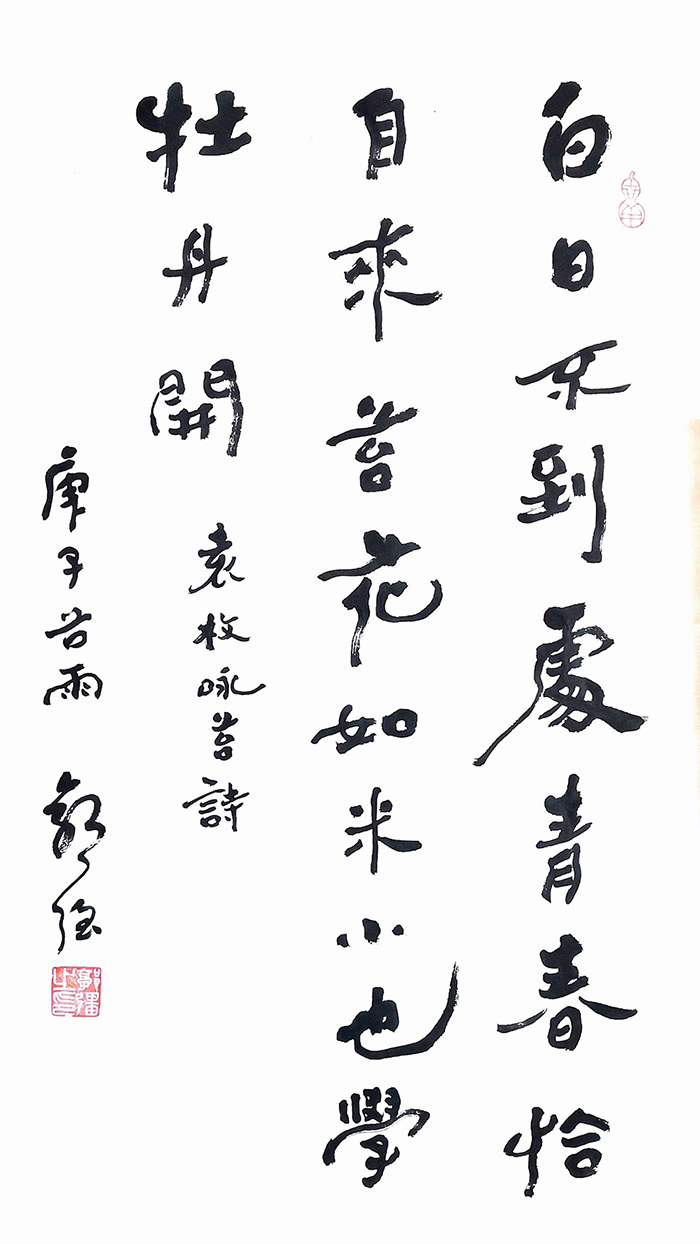 白日不到處青春恰
自來苔花如米小也學
牡丹開
袁枚咏苔詩
庚子谷雨